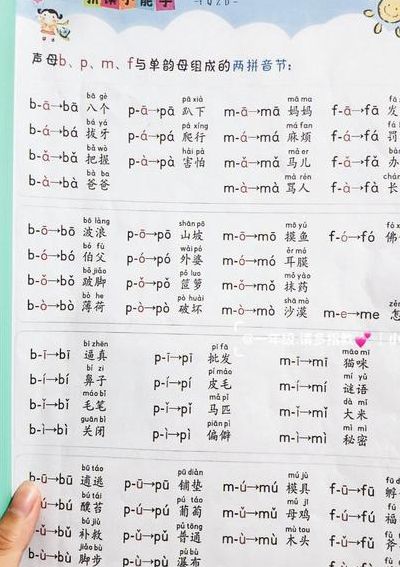 新课小能手
-YQZD-
声母b、p、m、f与单韵母组成的两拼音节:
bā gè pā xià mā ma
b-ā→bā 八个 p-ā→pā 趴下 m-ā→mā 妈妈 f-ā→fā 发
bá yá pá xíng má fan
b-á→bá 拔牙 p-á→pá 爬行 m-á→má 麻烦 f-á→fá
bǎ wò hài pà mǎ ér
b-ǎ→bǎ 把握 p-à→pà 害怕 m-ǎ→mǎ 马儿 f-ǎ→fǎ
bà ba mà rén
b-à→bà 爸爸 m-à→mà 骂人 f-à→fà
bō làng shān pō mō yú
b-ō→bō 波浪 p-ō→pō 山坡 m-ō→mō 摸鱼 f-ó→fó 佛
bó fù wài pó ěr mó
b-ó→bó 伯父 p-ó→pó 外婆 m-ó→mó 耳膜
bǒ jiǎo pǒ luo mǒ yào
b-ǒ→bǒ 跛脚 p-ǒ→pǒ 笸箩 m-ǒ→mǒ 抹药
bò he pò huài shā mò
b-ò→bò 薄荷 p-ò→pò 破坏 m-ò→mò 沙漠 m-e→me 怎
bī zhēn pī fā māo mī
b-ī→bī 逼真 p-ī→pī 批发 m-ī→mī 猫咪
bí zi pí máo mí yǔ
b-í→bí 鼻子 p-í→pí 皮毛 m-í→mí 谜语
máo bǐ mǎ pǐ dà mǐ
b-ǐ→bǐ 毛笔 p-ǐ→pǐ 马匹 m-ǐ→mǐ 大米
guān bì piān pì mì mì
b-ì→bì 关闭 p-ì→pì 偏僻 m-ì→mì 秘密
bū táo pū diàn mú jù
b-ū→bū 逋逃 p-ū→pū 铺垫 m-ú→mú 模具 f-ū→fū 孵
bú tái pú táo mǔ jī
b-ú→bú 醭苔 p-ú→pú 葡萄 m-ǔ→mǔ 母鸡 f-ú→fú 福
bǔ jiù pǔ tōng mù tou
b-ǔ→bǔ 补救 p-ǔ→pǔ 普通 m-ù→mù 木头 f-ǔ→fǔ 斧
jiǎo bù pù bù
b-ù→bù 脚步 p-ù→pù 瀑布 f-ù→fù